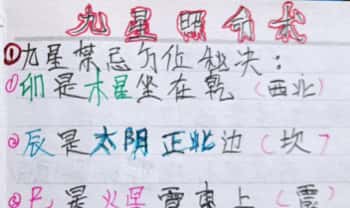 九星照命式
①九星禁忌方位秘决：
①卯是木星坐在乾（西北）
②辰是太阴正北边（坎）
③巳是火星震東上（震）